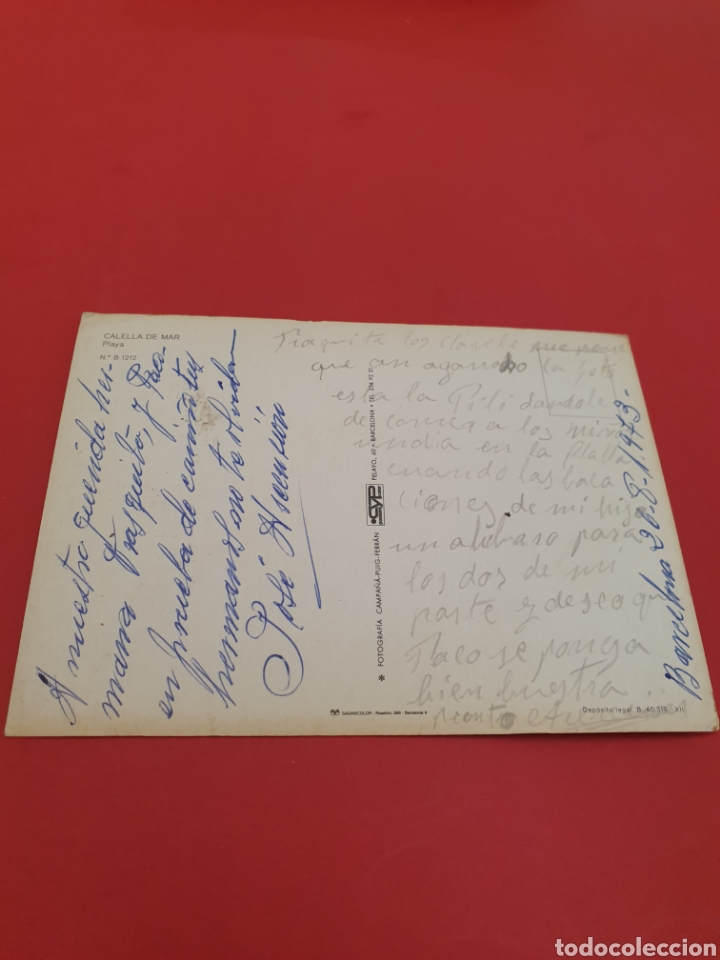 CALELLA DE MAR
Playa
N.º B 1212
A nuestra querida her-
mana Frasquita, y Paco
en prueba de cariño tus
hermanos no te olvidan
José Asensión
FOTOGRAFÍA CAMPAÑÁ-PUIG-FERRÁN
CYP
PELAYO, 60 • BARCELONA • TEL.
Fraquita los
que an la foto
esta la Pili dandole
de comer a los
un dia en la Plalla
cuando las baca
ciones de mi hija
un abraso para
los dos de mi
parte y deseo que
Paco se ponga
bien buestra
Barcelona 20-8-1973-
Depósito legal B. 40.315 XII
todocoleccion